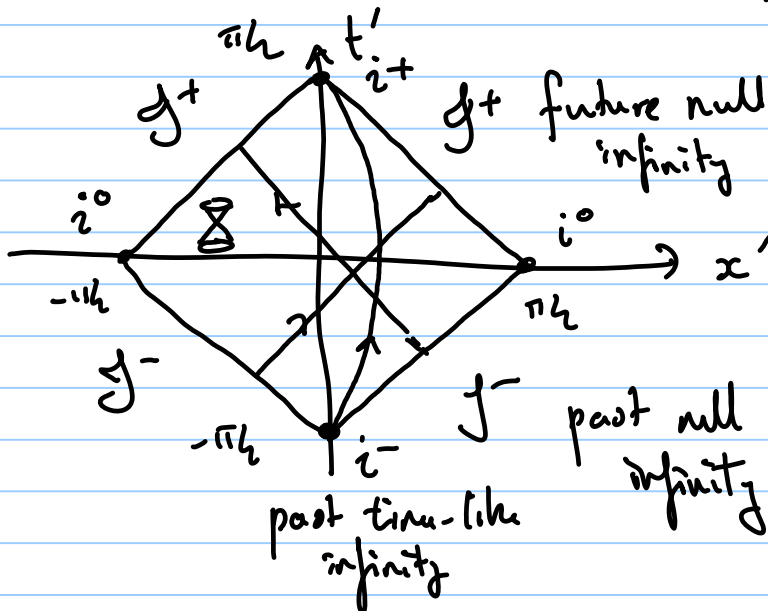 π/2 t'
i⁺
𝒥⁺ 𝒥⁺ future null
infinity
i⁰ i⁰
x'
-π/2 π/2
𝒥⁻ 𝒥⁻ past null
infinity
-π/2 i⁻
past time-like
infinity